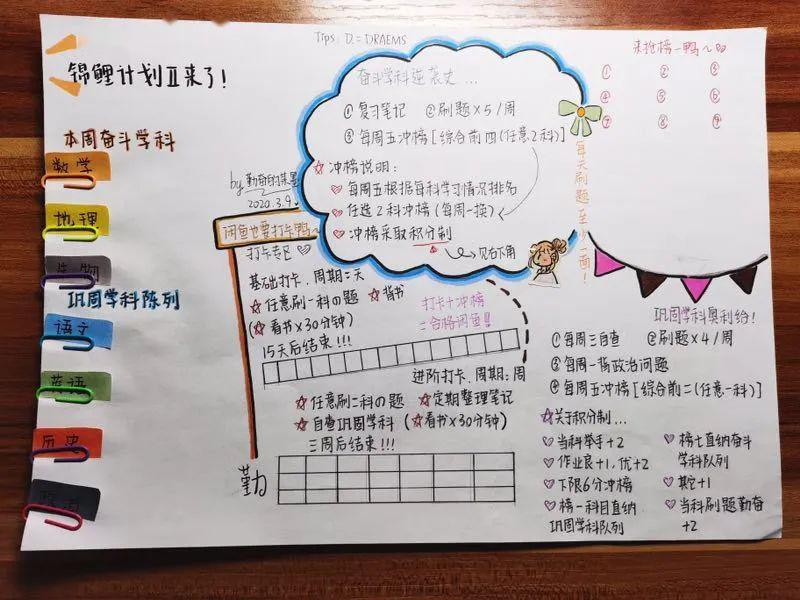 Tips: D.= DRAEMS
锦鲤计划Ⅱ来了!
本周奋斗学科
数学
地理
生物
巩周学科陈列
语文
英语
历史
政治
by 勤奋的某墨
2020.3.9.
奋斗学科逆袭史...
①复习笔记 ②刷题×5/周
③每周五冲榜[综合前四(任意2科)]
冲榜说明:
每周五根据每科学习情况排名
任选2科冲榜(每周一换)
冲榜采取积分制
见右下角
每天刷题至少一面!
来抢榜一鸭~
① ② ③
④ ⑤ ⑥
⑦ ⑧ ⑨
闲鱼也要打卡鸭~
打卡专记
基础打卡.周期:天
任意刷一科の题 背书
(看书×30分钟)
15天后结束!!!
打卡+冲榜
=合格闲鱼!!
进阶打卡.周期:周
任意刷二科の题 定期整理笔记
自查巩固学科 (看书×30分钟)
三周后结束!!!
勤
巩周学科奥利给!
①每周三自查 ②刷题×4/周
③每周一背政治问题
④每周五冲榜[综合前二(任意一科)]
关于积分制...
当科举手+2
作业良+1,优+2
下限6分冲榜
榜一科目直纳
巩周学科队列
榜七直纳奋斗
学科队列
其它+1
当科刷题勤奋
+2